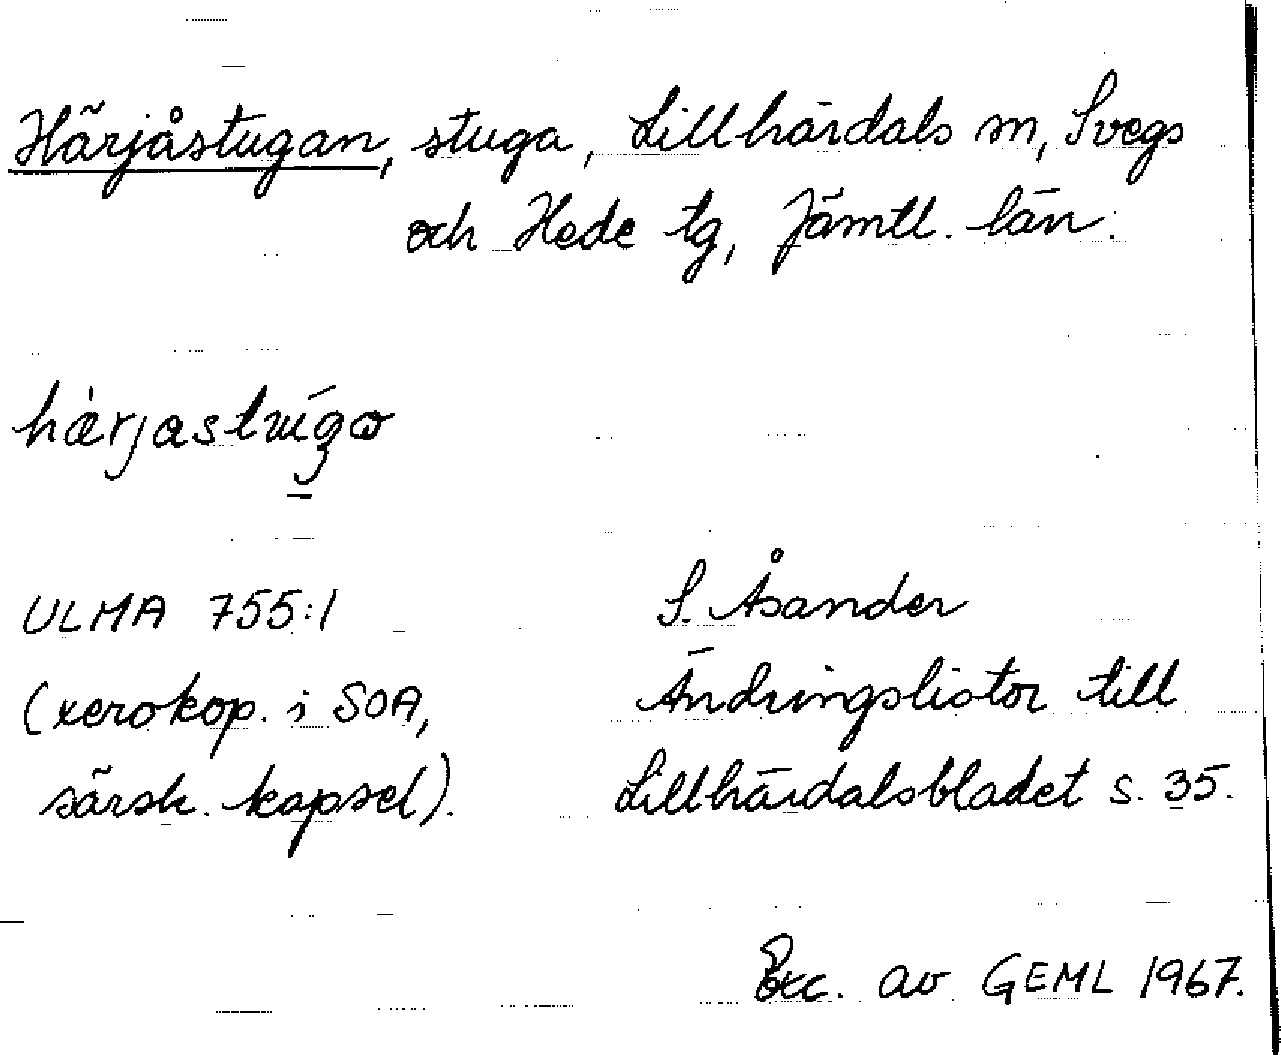 Härjåstugan, stuga, Lillhärdals sn, Svegs
och Hede tg, Jämtl. län.
ULMA 755:1
S. Åsander
(xerokop. i SOA,
Ändringslistor till
särsk. kapsel).
Lillhärdalsbladet s. 35.
Exc. av GEML 1967.